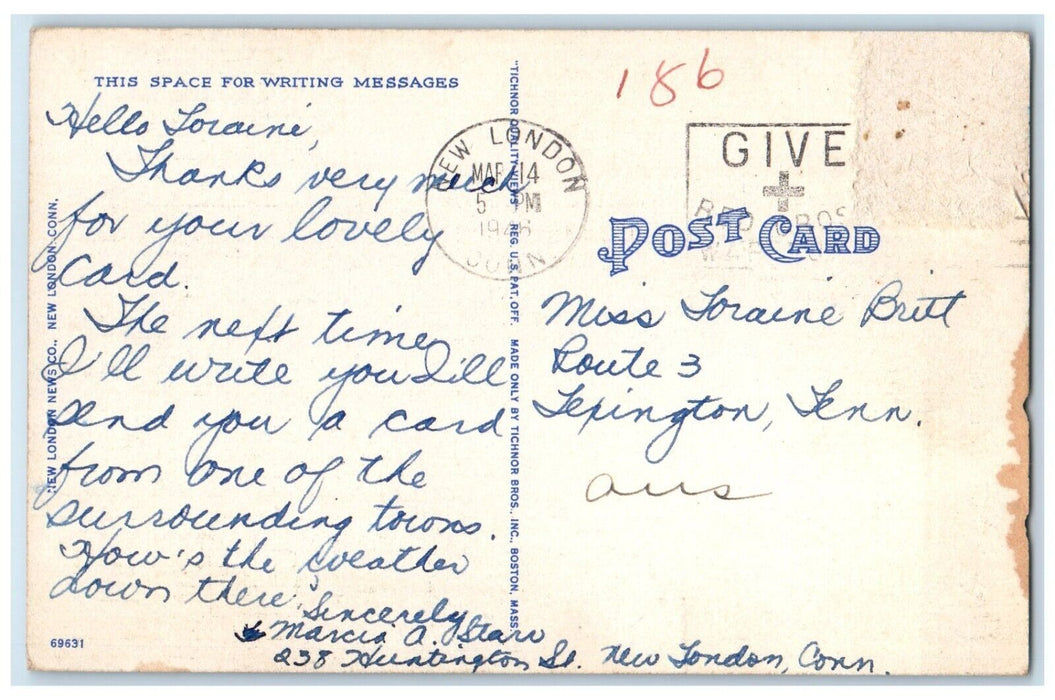 THIS SPACE FOR WRITING MESSAGES
Hello Loraine,
Thanks very much
for your lovely
card.
The next time
I'll write you I'll
send you a card
from one of the
surrounding towns.
How's the weather
down there?
Sincerely
Marcia A. Starr
238 Huntington St. New London, Conn.
69631
NEW LONDON NEWS CO., NEW LONDON, CONN.
"TICHNOR QUALITY VIEWS" REG. U.S. PAT. OFF. MADE ONLY BY TICHNOR BROS., INC., BOSTON, MASS.
NEW LONDON
MAR 14
5 PM
1946
CONN.
186
GIVE
RED CROS
POST CARD
Miss Loraine Britt
Route 3
Lexington, Tenn.
ans